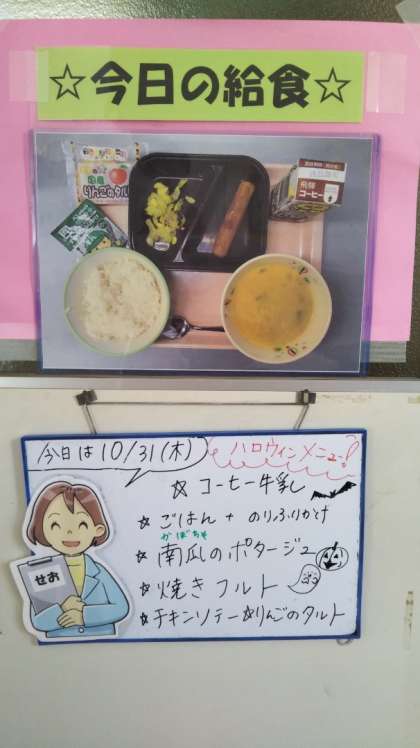 ☆今日の給食☆
りんごのタルト
飛騨
コーヒー
今日は10/31(木)
ハロウィンメニュー!
☆コーヒー牛乳
☆ごはん + のりふりかけ
かぼちゃ
☆南瓜のポタージュ
☆焼きフルト
☆チキンソテー☆りんごのタルト
せお